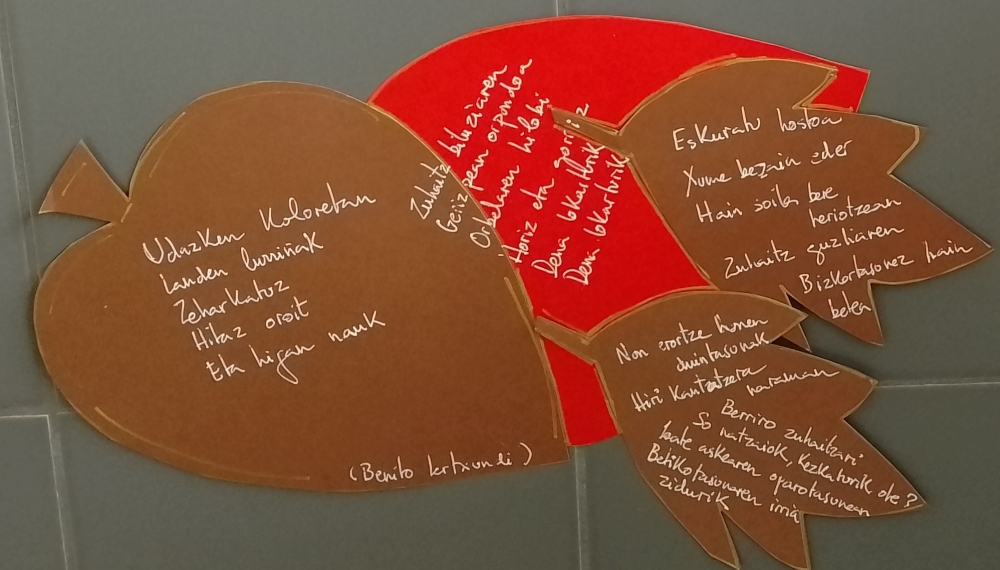 Udazken Koloretan
Landen lurrinak
Zeharkatuz
Hitaz oroit
Eta higan nauk
(Benito Lertxundi)
Zuhaitz biluziaren
Geriz pean orpondoa
Orbelaren hilobi
Horiz eta gorriz
Dena ibkarturik
Dena ibkarturik
Eskuratu hostoa
Xume bezain eder
Hain soila bere
heriotzean
Zuhaitz guztiaren
Bizkortasunez hain
betea
Non erortze honen
duintasunak
Hiri Kantatzera
naraman
Berriro zuhaitzari
So natzaiok, Kezkaturik ote?
bake askearen oparotasunean
Betikotasunaren irria
zidurik